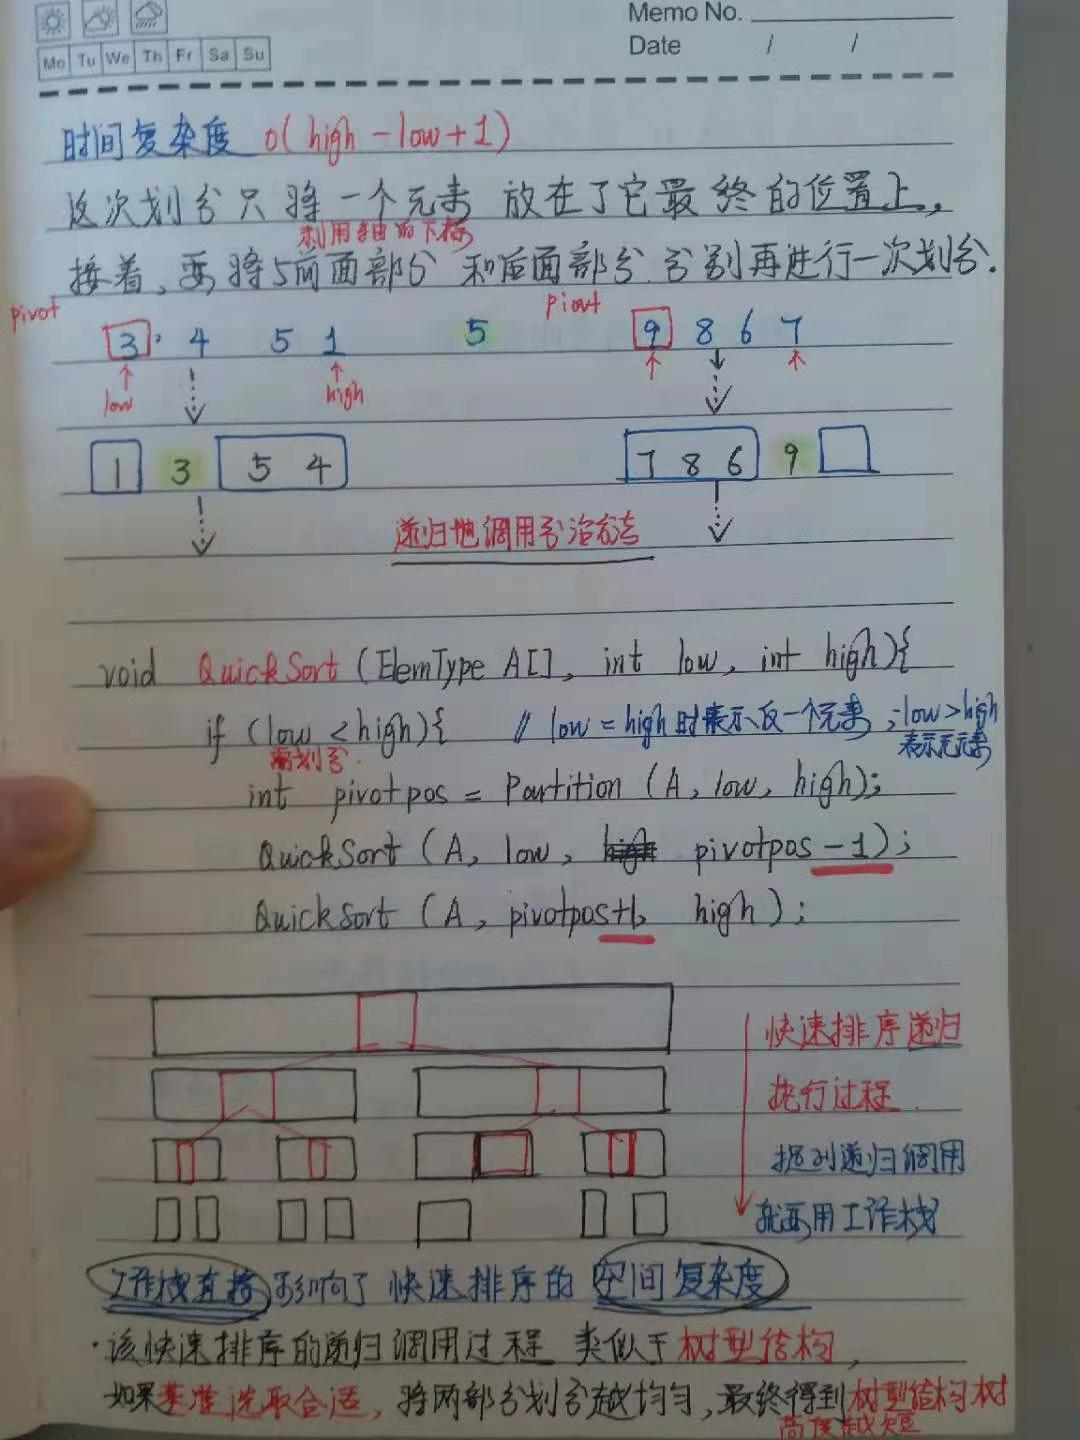 Memo No.
Mo Tu We Th Fr Sa Su
Date / /
时间复杂度 O(high-low+1)
这次划分只将一个元素 放在了它最终的位置上,
利用轴的下标
接着,要将5前面部分 和后面部分分别再进行一次划分.
pivot piovt
3 4 5 1 5 9 8 6 7
low high
1 3 5 4 7 8 6 9
递归地调用分治方法
void QuickSort (ElemType A[], int low, int high){
if (low < high){ // low = high 时表示仅一个元素; low>high
需划分. 表示无元素
int pivotpos = Partition (A, low, high);
QuickSort (A, low, pivotpos-1);
QuickSort (A, pivotpos+1, high);
快速排序递归
执行过程
提到递归调用
就要用工作栈
工作栈直接影响了快速排序的空间复杂度
·该快速排序的递归调用过程 类似于树型结构,
如果基准选取合适,将两部分划分越均匀,最终得到树型结构树
高度越短